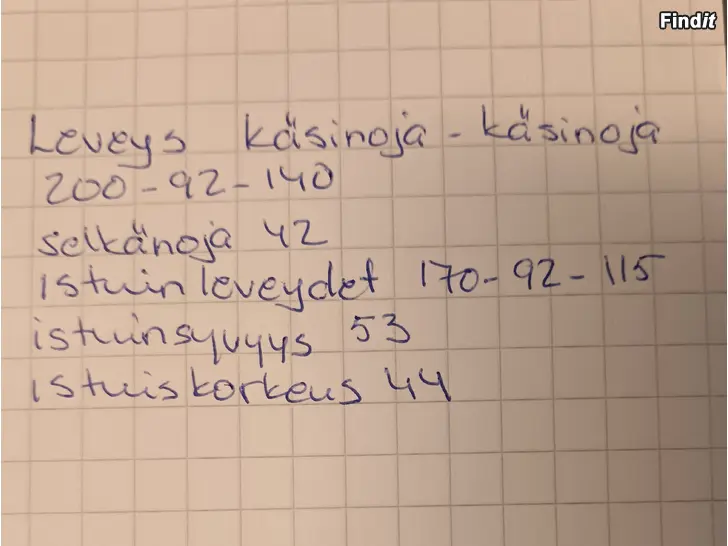 Findit
Leveys käsinoja - käsinoja
200-92-140
selkänoja 42
istuinleveydet 170-92-115
istuinsyvyys 53
istuiskorkeus 44